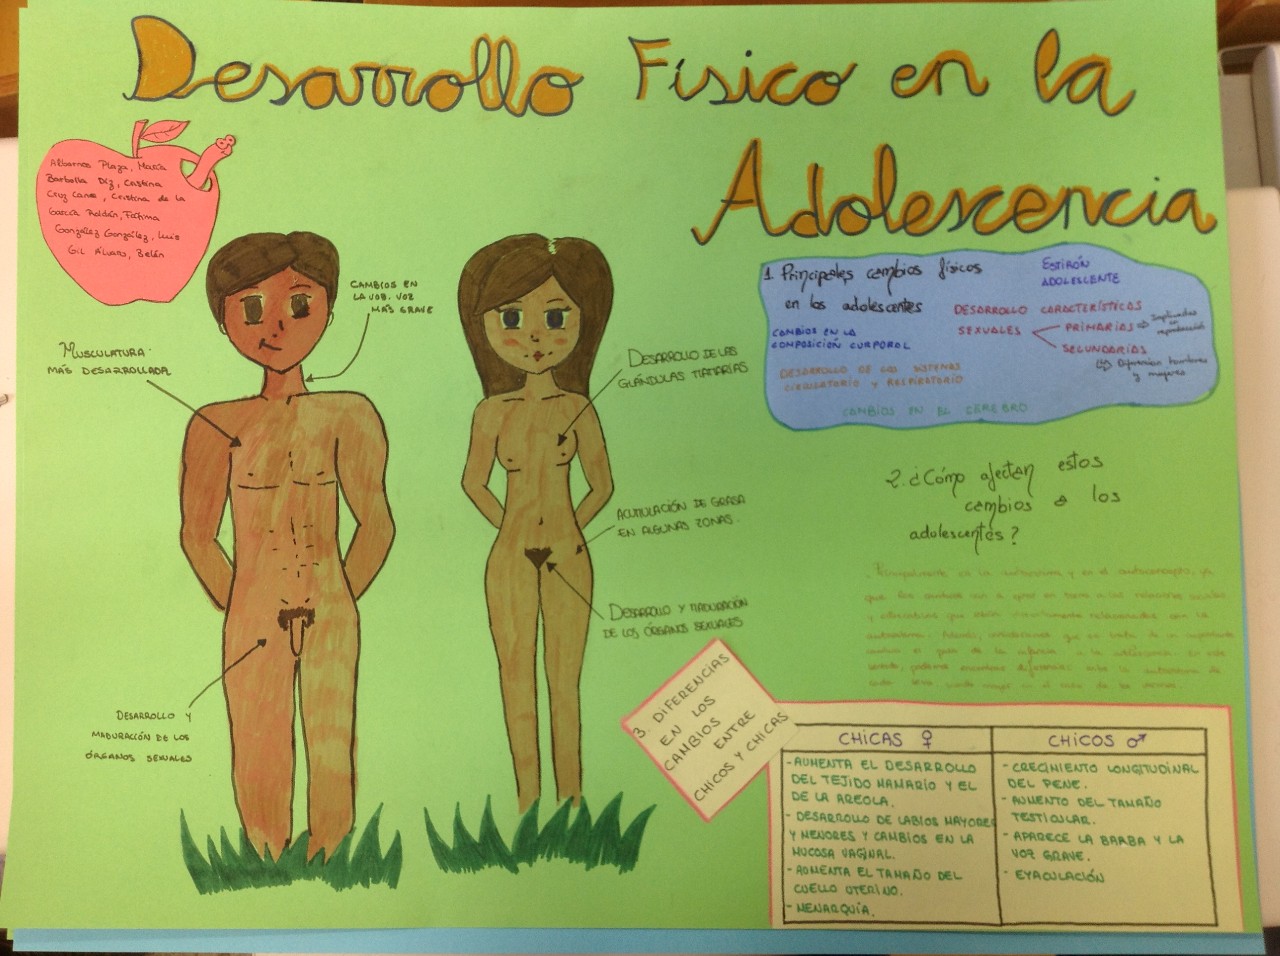 Desarrollo Físico en la
Adolescencia
Albornos Plaza, María
Barbolla Díz, Cristina
Cruz Cano, Cristina de la
García Roldán, Fátima
González González, Luis
Gil Álvaro, Belén
CAMBIOS EN
LA VOZ. VOZ
MÁS GRAVE
MUSCULATURA
MÁS DESARROLLADA
DESARROLLO Y
MADURACIÓN DE LOS
ÓRGANOS SEXUALES
DESARROLLO DE LAS
GLÁNDULAS MAMARIAS
ACUMULACIÓN DE GRASA
EN ALGUNAS ZONAS.
DESARROLLO Y MADURACIÓN
DE LOS ÓRGANOS SEXUALES
1. Principales cambios físicos
en los adolescentes
ESTIRÓN
ADOLESCENTE
CAMBIOS EN LA
COMPOSICIÓN CORPORAL
DESARROLLO CARACTERÍSTICAS
SEXUALES
PRIMARIAS
Implicadas en
reproducción
SECUNDARIAS
Diferencian hombres
y mujeres
DESARROLLO DE LOS SISTEMAS
CIRCULATORIO Y RESPIRATORIO
CAMBIOS EN EL CEREBRO
2. ¿Cómo afectan estos
cambios a los
adolescentes?
Principalmente en la autoestima y en el autoconcepto, ya
que los
y
autoestima. Además,
3. DIFERENCIAS
EN LOS
CAMBIOS
ENTRE
CHICOS Y CHICAS
CHICAS ♀
- AUMENTA EL DESARROLLO
DEL TEJIDO MAMARIO Y EL
DE LA AREOLA.
- DESARROLLO DE LABIOS MAYORES
Y MENORES Y CAMBIOS EN LA
MUCOSA VAGINAL.
- AUMENTA EL TAMAÑO DEL
CUELLO UTERINO.
- MENARQUÍA.
CHICOS ♂
- CRECIMIENTO LONGITUDINAL
DEL PENE.
- AUMENTO DEL TAMAÑO
TESTICULAR.
- APARECE LA BARBA Y LA
VOZ GRAVE.
- EYACULACIÓN